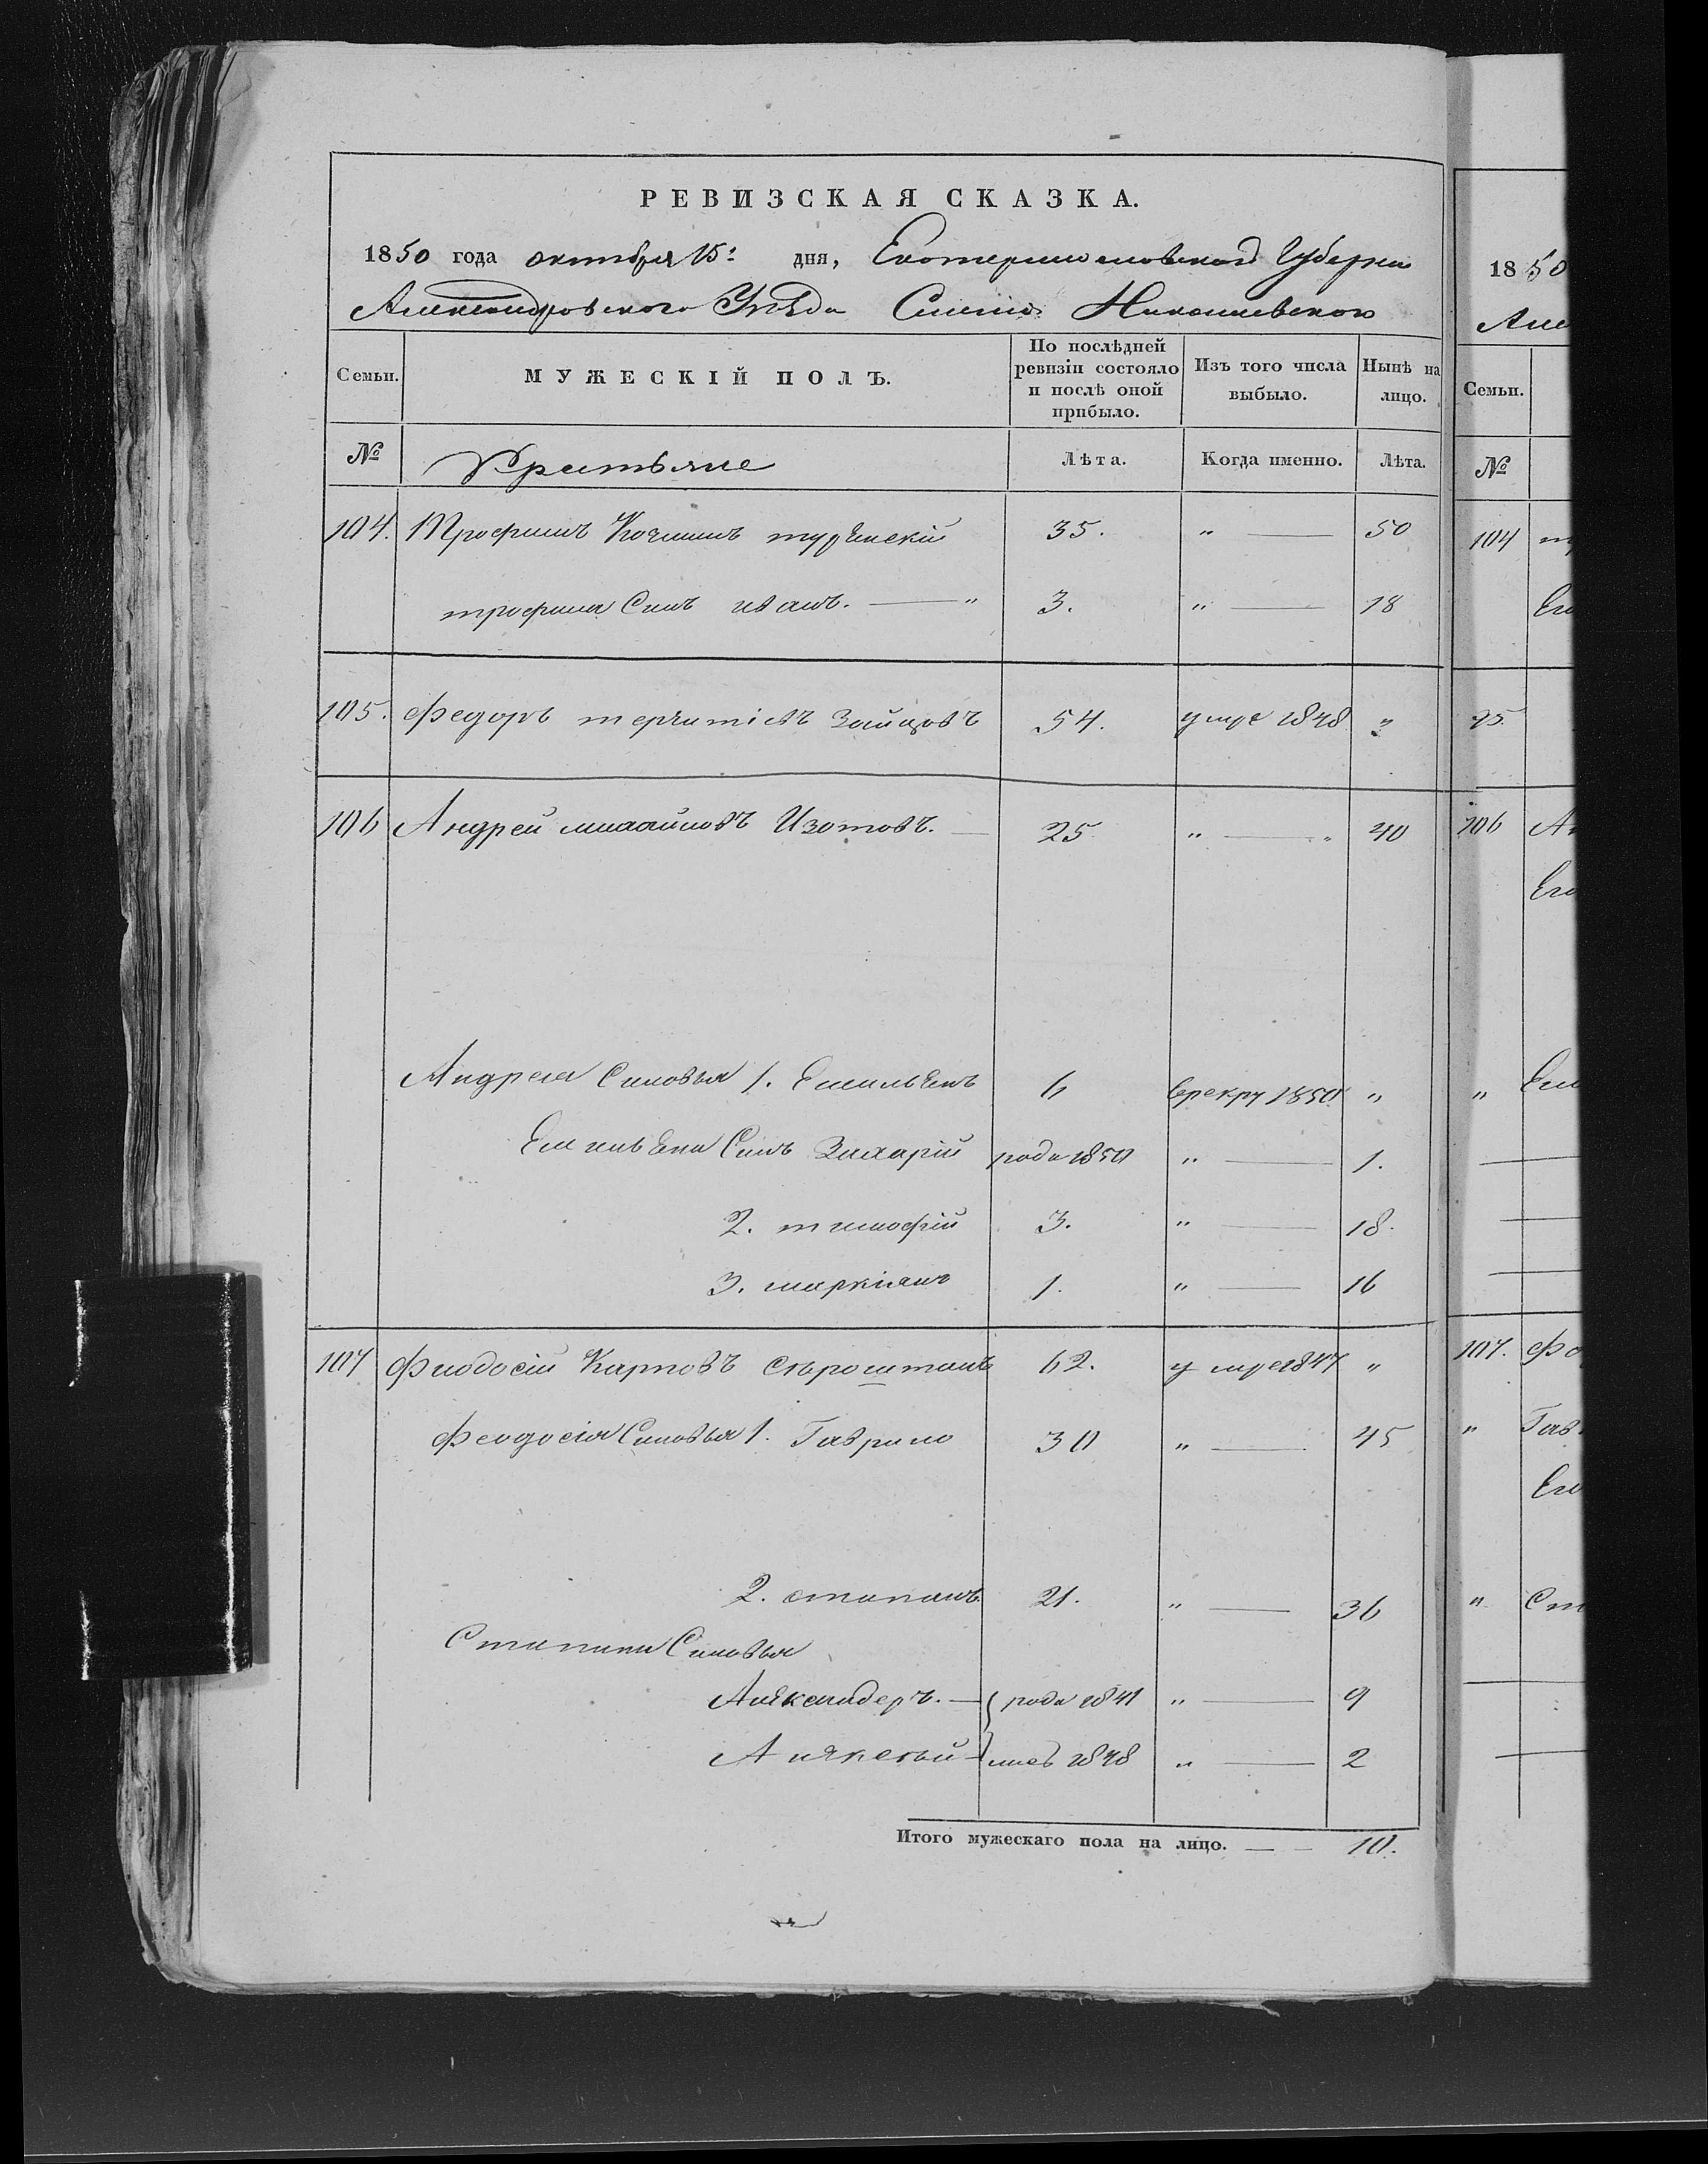 РЕВИЗСКАЯ СКАЗКА.
1850 года октября 15: дня, Екатеринославской Губерни
Александровского Уезда Селения Николаевского
Семьи. МУЖЕСКІЙ ПОЛЪ. По послѣдней ревизіи состояло и послѣ оной прибыло. Изъ того числа выбыло. Нынѣ на лицо.
№ Крестьяне Лѣта. Когда именно. Лѣта.
104. Трофимъ 35. „ — 50
трофима Синъ иванъ. — „ 3. „ — 18
105. Федоръ Зайцовъ 54. умре 1848 „
106 Андрей михайловъ Изотовъ. — 25 „ — „ 40
Андрея Синовья 1. Емильянъ 6 Врекру 1850 „
Емильяна Синъ Захарій рода 1850 „ — 1.
2. тимофій 3. „ — 18.
3. маркіянъ 1. „ — 16
107 Фиодосій Карповъ Сѣроштанъ 62. умре 1847 „
Феодосія Синовья 1. Гаврило 30 „ — 45
2. степанъ 21. „ — 36
Степана Синовья
Александеръ. — рода 1841 „ — 9
Алексѣй 1848 „ — 2
Итого мужескаго пола на лицо. — — 10.
1850
Але
Семьи.
№
104
Ем
95.
106 Ан
Его
„
107. Фо
„ Гав
Его
„ Ст